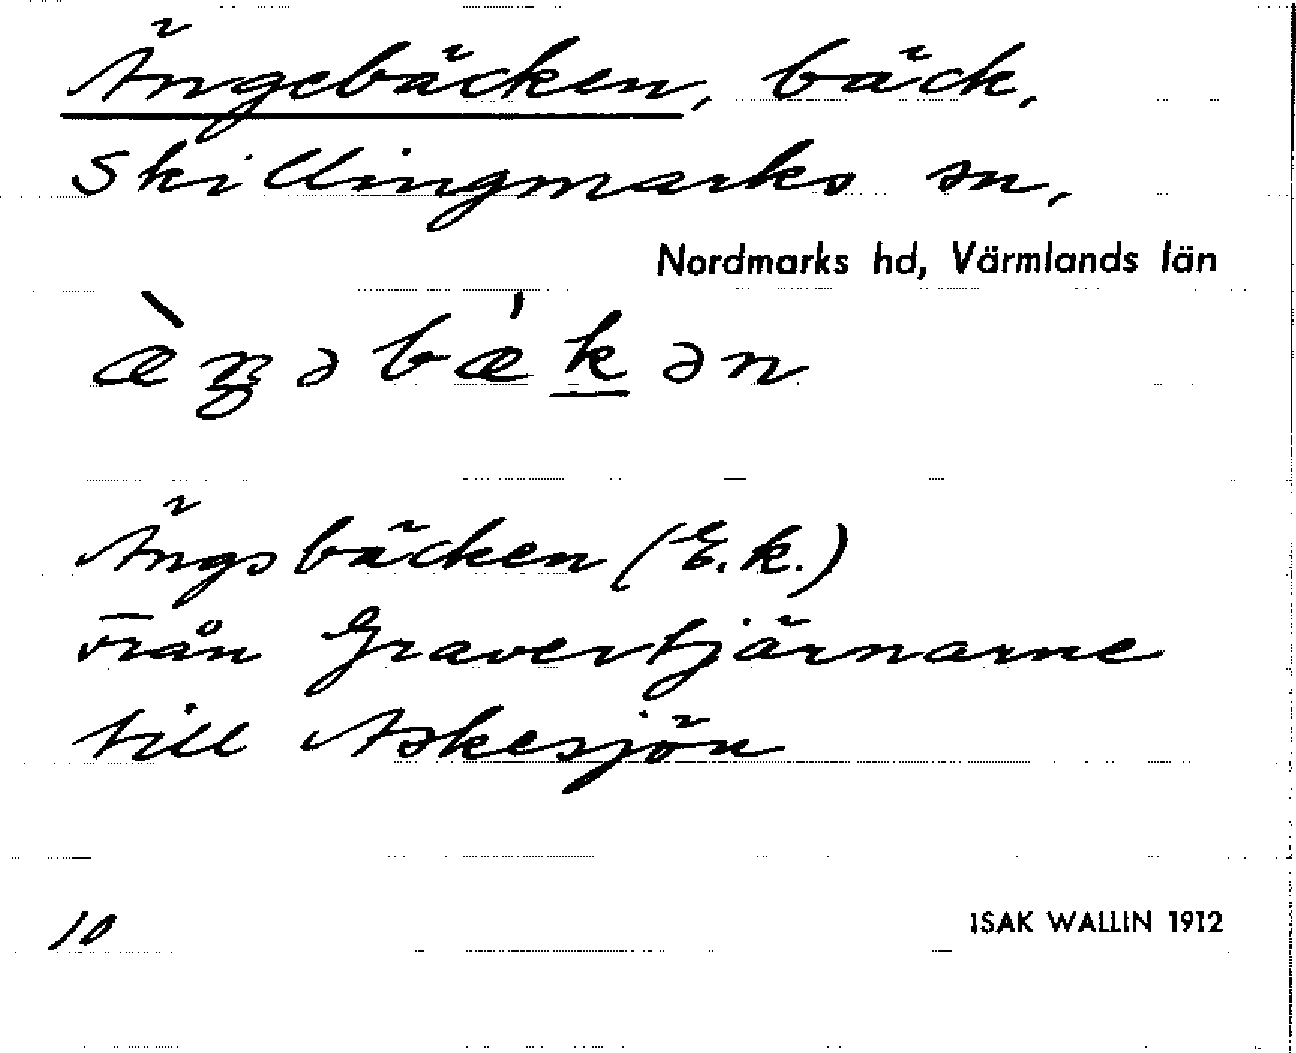 Ängebäcken, bäck,
Skillingmarks sn,
Nordmarks hd, Värmlands län
æ̀ŋəbǽk̲ən
Ängsbäcken (E.k.)
Från Gravertjärnarne
till Askesjön
10
ISAK WALLIN 1912